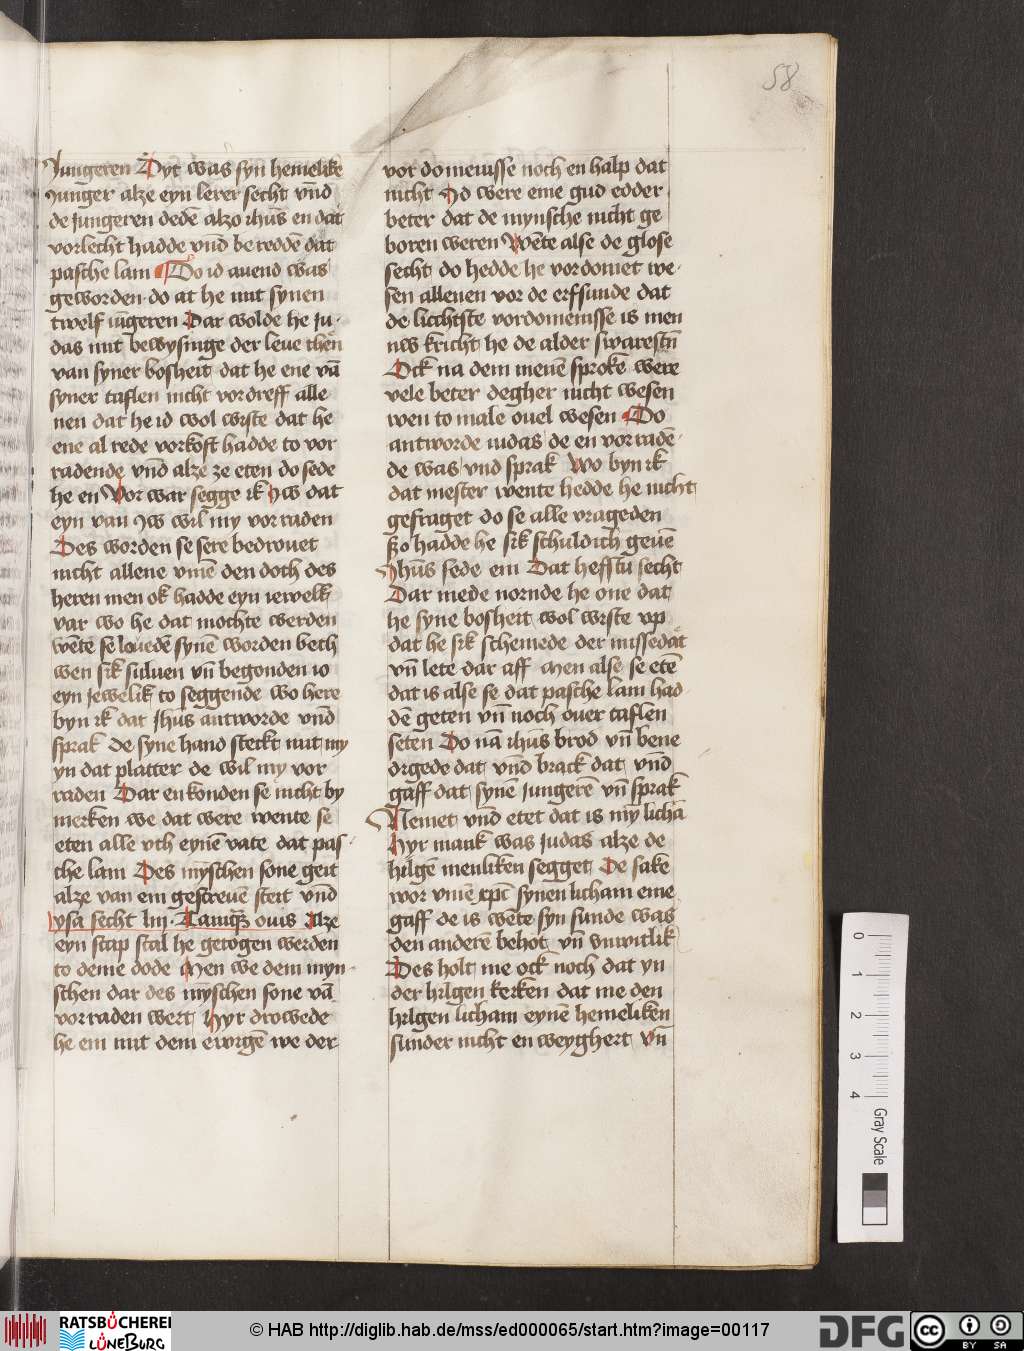 58
Jungeren Dyt was syn hemelike
Junger alze eyn lerer secht vn̄d
de Jungeren dedē alzo ihūs en dat
vorlecht hadde vn̄d be reddē dat
pasche lam Do id auend was
geworden do at he mit synen
twelf iūgeren Dar wolde he ju-
das mit bewysinge der leue then
van syner bosheit dat he ene vā
syner taflen nicht vordreff alle
nen dat he id wol wiste dat he
ene al rede vorkoft hadde to vor
radende vn̄d alze ze eten do sede
he en Vor war segge ik yw dat
eyn van yw wil my vorraden
Des worden se sere bedrouet
nicht allene vmē den doth des
heren men ok hadde eyn iewelk
var wo he dat mochte werden
wēte se louedē synē worden beth
wen sik suluen vn̄ begonden io
eyn jewelik to seggende wo here
byn ik dat Jhūs antworde vn̄d
sprak de syne hand steckt mit my
yn dat platter de wil my vor
raden Dar en konden se nicht by
merken we dat were wente se
eten alle vth eynē vate dat pas-
che lam Des mȳschen sone geit
alze van em gescreuē steit vn̄d
ysa secht liii Tamqȝ ouis Alze
eyn scap schal he getogen werden
to deme dode Men we dem myn-
schen dar des mȳschen sone vā
vorraden wert Hyr drowede
he em mit dem ewigē we der
vordomenisse noch en halp dat
nicht Id were eme gud edder
beter dat de mynsche nicht ge
boren weren Wēte alse de glose
secht do hedde he vordomet we-
sen alleuen vor de erfsunde dat
de lichtste vordomenisse is men
nw kricht he de alder swarestn̄
Ock na dem menē sprokē were
vele beter degher nicht wesen
wen to male ouel wesen Do
antworde iudas de en vorradē-
de was vnd sprak Wo byn ik
dat mester wente hedde he nicht
gefraget do se alle vrageden
so hadde he sik schuldich geuē
Jhūs sede em Dat hefstu secht
Dar mede nornde he one dat
he syne bosheit wol wiste vp
dat he sik schemede der missedat
vn̄ lete dar aff Men alse se etē
dat is alse se dat pasche lam had-
dē geten vn̄ noch ouer taflen
seten Do nā ihūs brod vn̄ bene
digede dat vn̄d brack dat vn̄d
gaff dat synē Jungerē vn̄ sprak
Nemet vn̄d etet dat is mȳ lichā
Hyr mank was Judas alze de
hilgē menliken segget De sake
wor vmē xpc̄ synen licham eme
gaff de is wēte syn sunde was
den anderē behot vn̄ vnwitlik
Des holt me ock noch dat yn
der hilgen kerken dat me den
hilgen licham eynē hemeliken
sunder nicht en weyghert vn̄
0
1
2
3
4
Gray Scale
RATSBÜCHEREI
LÜNEBURG
© HAB http://diglib.hab.de/mss/ed000065/start.htm?image=00117
DFG
cc BY SA